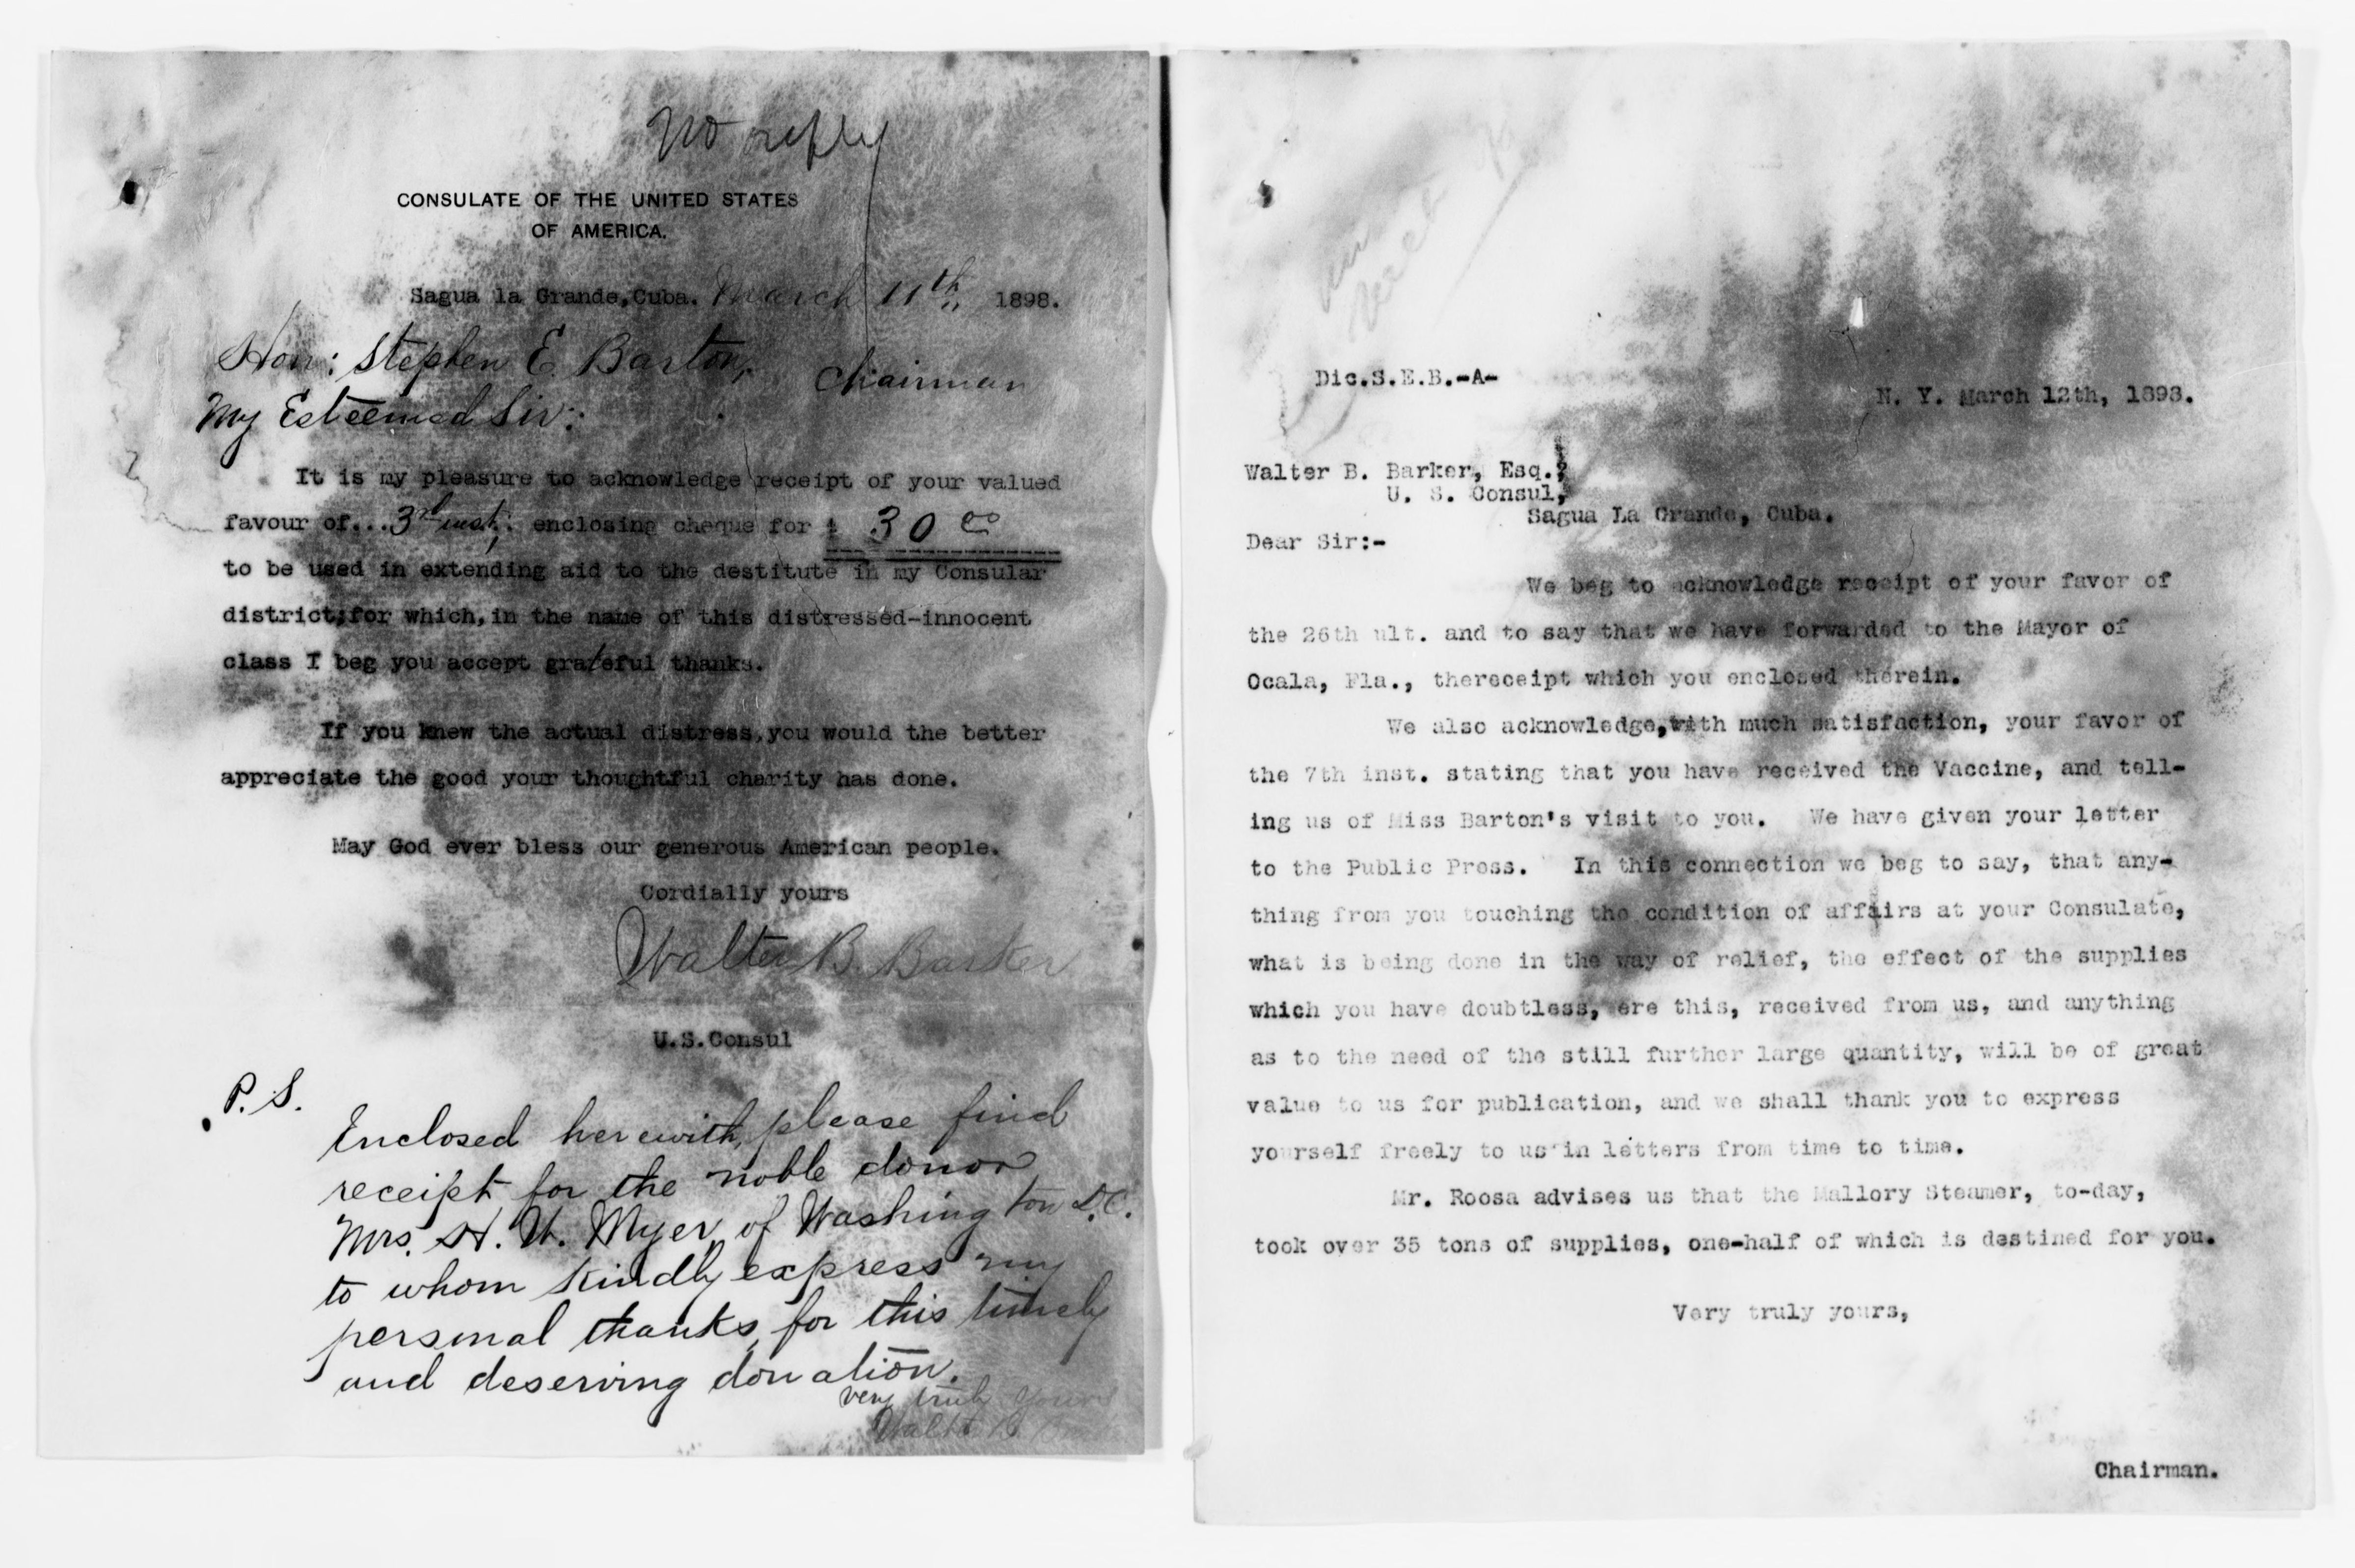 No reply
CONSULATE OF THE UNITED STATES
OF AMERICA.
Sagua la Grande,Cuba. March 11th 1898.
Hon: Stephen E. Barton,
Chairman
My Esteemed Sir:
It is my pleasure to acknowledge receipt of your valued
favour of...3rd inst; enclosing cheque for $ 30 00
to be used in extending aid to the destitute in my Consular
district;for which,in the name of this distressed-innocent
class I beg you accept grateful thanks.
If you knew the actual distress,you would the better
appreciate the good your thoughtful charity has done.
May God ever bless our generous American people.
Cordially yours
Walter B. Barker
U.S.Consul
P.S.
Enclosed herewith, please find
receipt for the noble donor
Mrs. H. W. Myer, of Washington D.C.
to whom kindly express my
personal thanks, for this timely
and deserving donation.
very truly yours
Walter B. Barker
Dic.S.E.B.-A-
N. Y. March 12th, 1898.
Walter B. Barker, Esq.,
U. S. Consul,
Sagua La Grande, Cuba.
Dear Sir:-
We beg to acknowledge receipt of your favor of
the 26th ult. and to say that we have forwarded to the Mayor of
Ocala, Fla., thereceipt which you enclosed therein.
We also acknowledge,with much satisfaction, your favor of
the 7th inst. stating that you have received the Vaccine, and tell-
ing us of Miss Barton's visit to you. We have given your letter
to the Public Press. In this connection we beg to say, that any-
thing from you touching the condition of affairs at your Consulate,
what is being done in the way of relief, the effect of the supplies
which you have doubtless, ere this, received from us, and anything
as to the need of the still further large quantity, will be of great
value to us for publication, and we shall thank you to express
yourself freely to us in letters from time to time.
Mr. Roosa advises us that the Mallory Steamer, to-day,
took over 35 tons of supplies, one-half of which is destined for you.
Very truly yours,
Chairman.